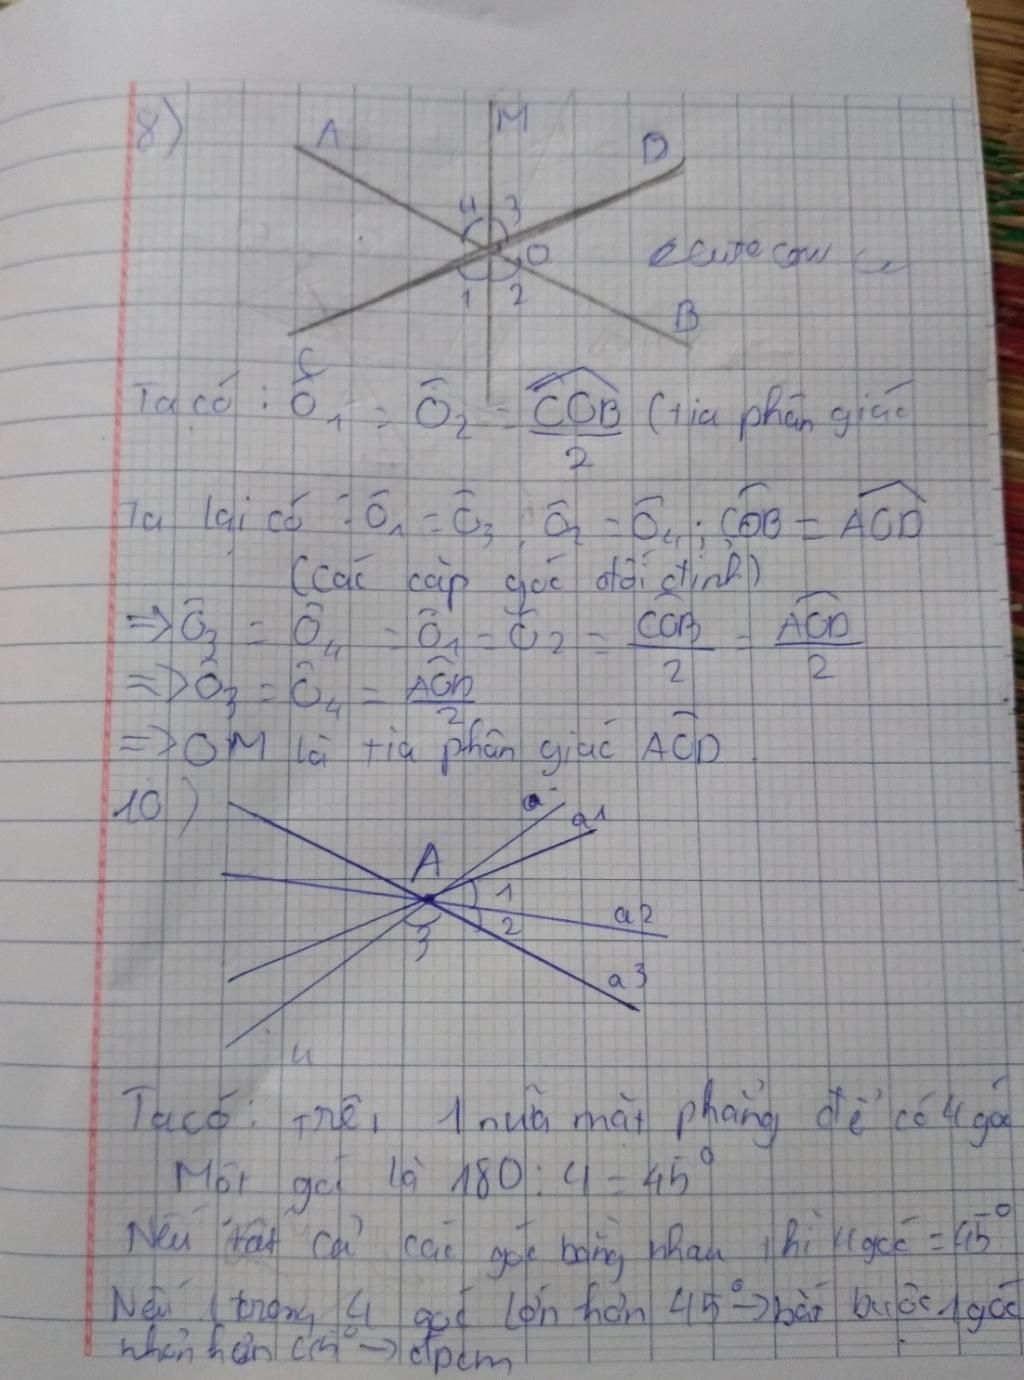 8)
A
M
D
4 3
O
1 2
B
C
Ta có : Ô1 = Ô2 = COB/2 (tia phân giác
Ta lại có : Ô1 = Ô3 , Ô2 = Ô4 ; COB = AOD
(các cặp góc đối đỉnh)
=> Ô3 = Ô4 = Ô1 = Ô2 = COB/2 = AOD/2
=> Ô3 = Ô4 = AOD/2
=> OM là tia phân giác AOD
10)
a
a1
A
1
a2
2
3
a3
4
Ta có : trên 1 nửa mặt phẳng để có 4 góc
Một góc là 180 : 4 = 45°
Nếu tất cả các góc bằng nhau thì 4 góc = 45°
Nếu 1 trong 4 góc lớn hơn 45° → bắt buộc 1 góc
nhỏ hơn 45° → đpcm